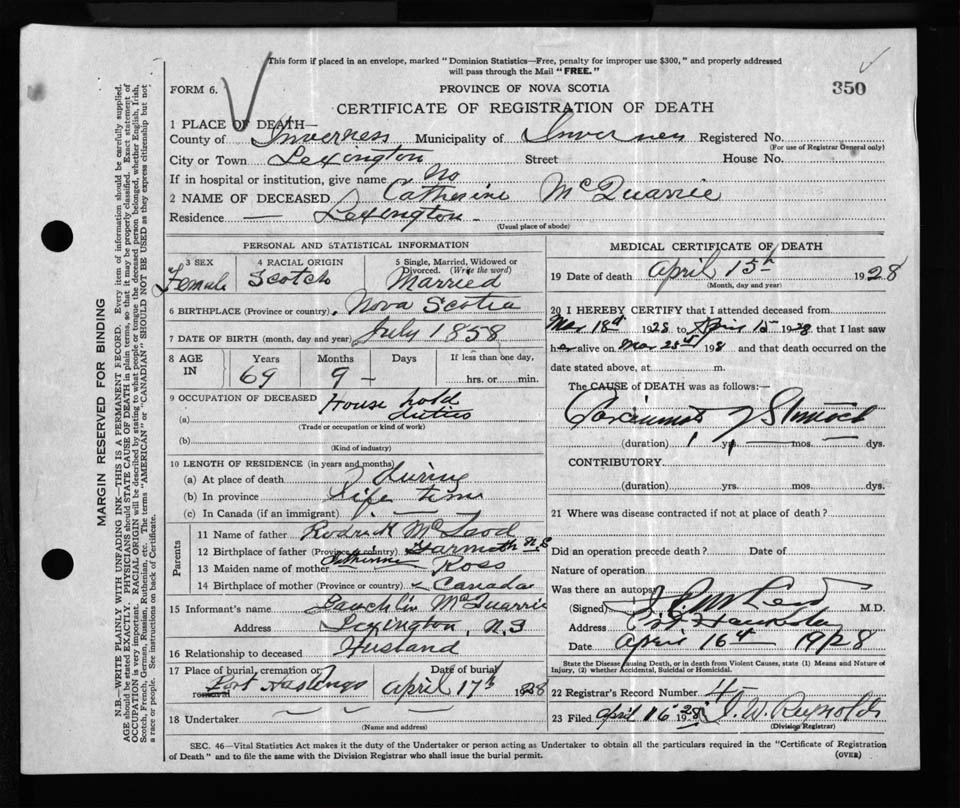 This form if placed in an envelope, marked "Dominion Statistics—Free, penalty for improper use $300," and properly addressed
will pass through the Mail "FREE."
FORM 6.
PROVINCE OF NOVA SCOTIA
350
CERTIFICATE OF REGISTRATION OF DEATH
1 PLACE OF DEATH—
County of Inverness Municipality of Inverness Registered No.
(For use of Registrar General only)
City or Town Lexington Street House No.
If in hospital or institution, give name No
2 NAME OF DECEASED Catherine McQuarrie
Residence — Lexington
(Usual place of abode)
MARGIN RESERVED FOR BINDING
N.B.—WRITE PLAINLY WITH UNFADING INK—THIS IS A PERMANENT RECORD. Every item of information should be carefully supplied.
AGE should be stated EXACTLY. PHYSICIANS should STATE CAUSE OF DEATH in plain terms, so that it may be properly classified. Exact statement of
OCCUPATION is very important. RACIAL ORIGIN will be described by stating to what people or tongue the deceased person belonged, whether English, Irish,
Scotch, French, German, Russian, Ruthenian, etc. The terms "AMERICAN" or "CANADIAN" SHOULD NOT BE USED as they express citizenship but not
a race or people. See instructions on back of Certificate.
PERSONAL AND STATISTICAL INFORMATION
3 SEX Female
4 RACIAL ORIGIN Scotch
5 Single, Married, Widowed or
Divorced. (Write the word)
Married
6 BIRTHPLACE (Province or country) Nova Scotia
7 DATE OF BIRTH (month, day and year) July 1858
8 AGE IN Years Months Days If less than one day,
69 9 — hrs. or min.
9 OCCUPATION OF DECEASED House hold
(a) duties
(Trade or occupation or kind of work)
(b)
(Kind of industry)
10 LENGTH OF RESIDENCE (in years and months)
(a) At place of death during
(b) In province life time
(c) In Canada (if an immigrant)
Parents
11 Name of father Rodrick McLeod
12 Birthplace of father (Province or country) N S
13 Maiden name of mother Catherine Ross
14 Birthplace of mother (Province or country) Canada
15 Informant's name Lauchlin McQuarrie
Address Lexington, N.S
16 Relationship to deceased Husland
17 Place of burial, cremation or Date of burial
Port Hastings April 17th 1928
18 Undertaker
(Name and address)
MEDICAL CERTIFICATE OF DEATH
19 Date of death April 15th 1928
(Month, day and year)
20 I HEREBY CERTIFY that I attended deceased from
Mar 18th 1928 to April 15 1928, that I last saw
her alive on Mar 198 and that death occurred on the
date stated above, at m.
The CAUSE of DEATH was as follows:—
Carcinoma of Stomach
(duration) 1 yrs. — mos. — dys.
CONTRIBUTORY.
(duration) yrs. mos. dys.
21 Where was disease contracted if not at place of death?
Did an operation precede death? Date of
Nature of operation
Was there an autopsy
(Signed) M.D.
Address Pt Hawkesbury
Date April 16th 1928
State the Disease Causing Death, or in death from Violent Causes, state (1) Means and Nature of
Injury, (2) whether Accidental, Suicidal or Homicidal.
22 Registrar's Record Number 4
23 Filed April 16 1928 J. W. Reynolds
(Division Registrar)
SEC. 46—Vital Statistics Act makes it the duty of the Undertaker or person acting as Undertaker to obtain all the particulars required in the "Certificate of Registration
of Death" and to file the same with the Division Registrar who shall issue the burial permit.
(OVER)